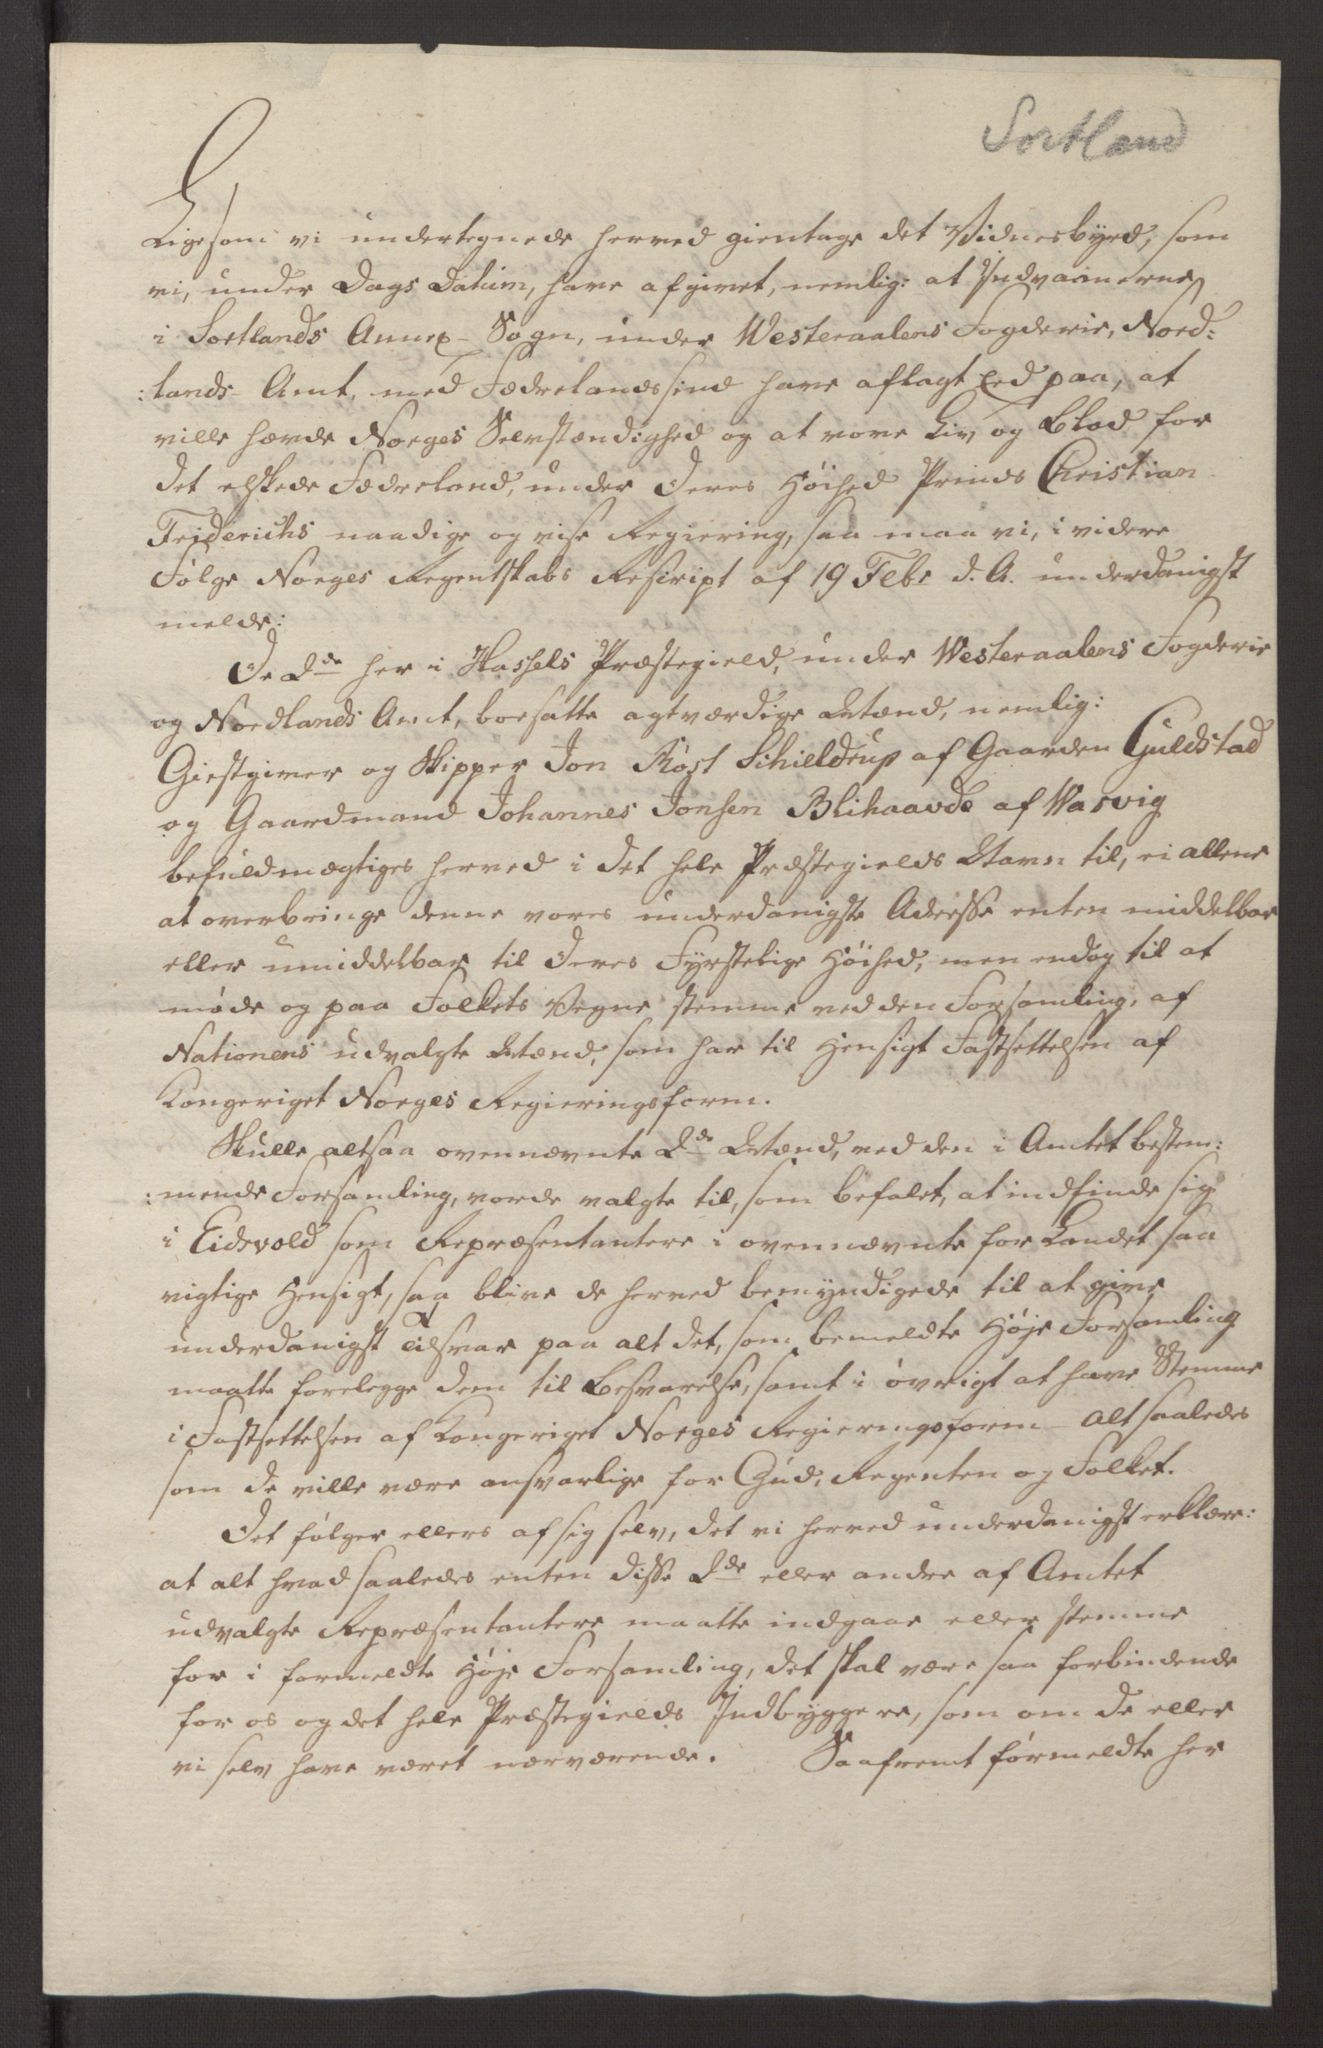 Sortland
Ligesom vi undertegnede herved gientage det Vidnesbyrd, som
vi, under Dags Datum, have afgivet, nemlig: at Indvaanerne
i Sortlands Annex-Sogn, under Westeraalens Fogderie, Nord:
:lands Amt, med Fædrelandssind have aflagt Eed paa, at
ville hævde Norges Selvstændighed og at vove Liv og Blod for
det elskede Fædreland, under Deres Høihed Prinds Christian
Friderichs naadige og vise Regiering, saa maa vi, i videre
Følge Norges Regentskabs Rescript af 19 Febr d. A. underdanigst
melde:
De 2de her i Hassels Præstegield, under Westeraalens Fogderie
og Nordlands Amt, boesatte agtværdige Mænd, nemlig:
Giestgiver og Skipper Jon Røst Schieldrup af Gaarden Guldstad
og Gaardmand Johannes Jonsen Blihaavde af Warvig
befuldmægtiges herved i det hele Præstegields Navn til, ei allene
at overbringe denne vores underdanigste Adresse enten middelbar
eller umiddelbar til Deres Fyrstelige Høihed, men endog til at
møde og paa Folkets Vegne stemme ved den Forsamling, af
Nationens udvalgte Mænd, som har til Hensigt Fastsettelsen af
Kongeriget Norges Regieringsform.
Skulle altsaa ovennævnte 2de Mænd, ved den i Amtet bestem:
:mende Forsamling, vorde valgte til, som befalet, at indfinde sig
i Eidsvold som Repræsentantere i ovennævnte for Landet saa
vigtige Hensigt, saa blive de herved bemyndigede til at give
underdanigst Tilsvar paa alt det, som bemeldte Høje Forsamling
maatte forelegge dem til Besvarelse, samt i øvrigt at have Stemme
i Fastsettelsen af Kongeriget Norges Regieringsform - alt saaledes
som de ville være ansvarlige for Gud, Regenten og Folket.
Det følger ellers af sig selv, det vi herved underdanigst erklære:
at alt hvad saaledes enten disse 2de eller andre af Amtet
udvalgte Repræsentantere maatte indgaae eller stemme
for i formeldte Høje Forsamling, det skal være saa forbindende
for os og det hele Præstegields Indbyggere, som om de eller
vi selv have været nærværende. Saafremt førmeldte her